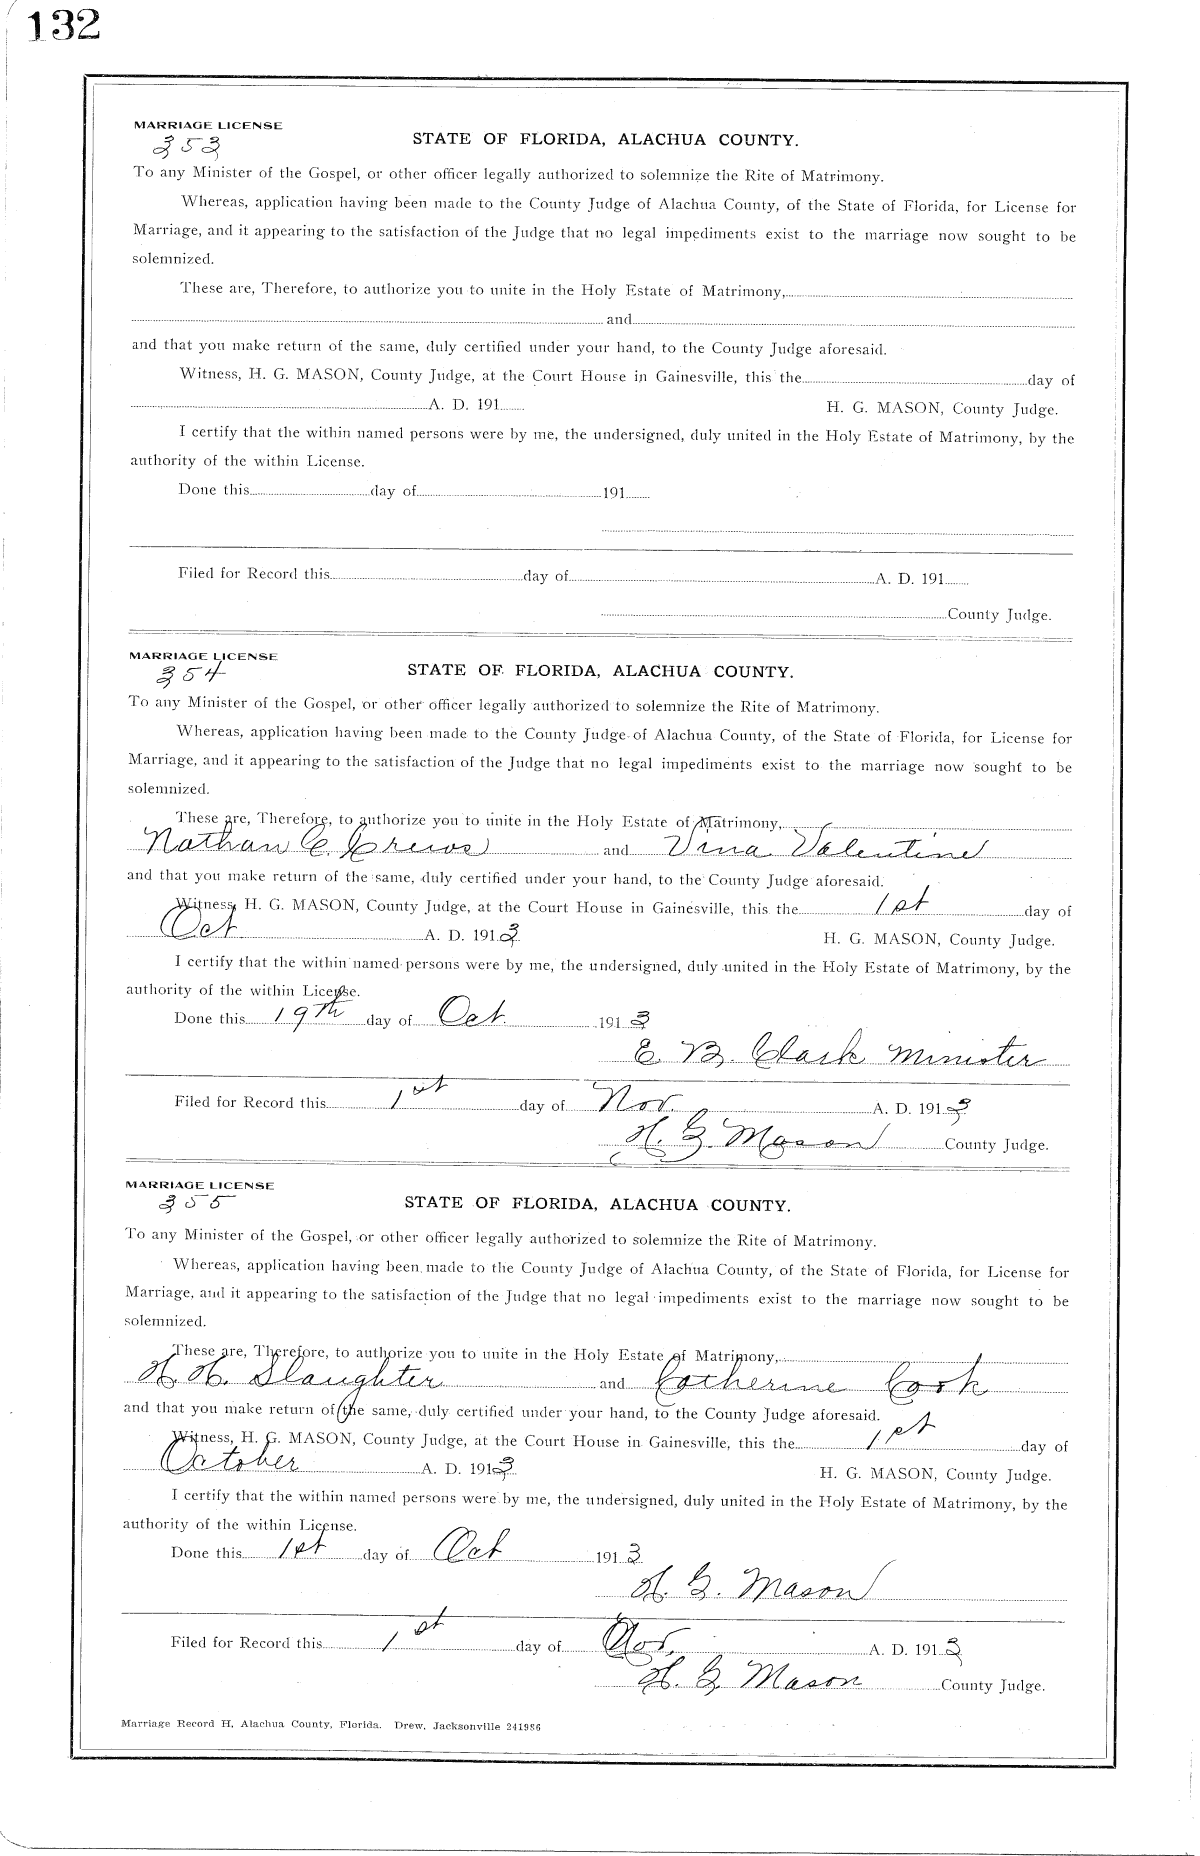 132
MARRIAGE LICENSE
353
STATE OF FLORIDA, ALACHUA COUNTY.
To any Minister of the Gospel, or other officer legally authorized to solemnize the Rite of Matrimony.
Whereas, application having been made to the County Judge of Alachua County, of the State of Florida, for License for
Marriage, and it appearing to the satisfaction of the Judge that no legal impediments exist to the marriage now sought to be
solemnized.
These are, Therefore, to authorize you to unite in the Holy Estate of Matrimony,
and
and that you make return of the same, duly certified under your hand, to the County Judge aforesaid.
Witness, H. G. MASON, County Judge, at the Court House in Gainesville, this the day of
A. D. 191 H. G. MASON, County Judge.
I certify that the within named persons were by me, the undersigned, duly united in the Holy Estate of Matrimony, by the
authority of the within License.
Done this day of 191
Filed for Record this day of A. D. 191
County Judge.
MARRIAGE LICENSE
354
STATE OF FLORIDA, ALACHUA COUNTY.
To any Minister of the Gospel, or other officer legally authorized to solemnize the Rite of Matrimony.
Whereas, application having been made to the County Judge of Alachua County, of the State of Florida, for License for
Marriage, and it appearing to the satisfaction of the Judge that no legal impediments exist to the marriage now sought to be
solemnized.
These are, Therefore, to authorize you to unite in the Holy Estate of Matrimony,
Nathan C. Crews and Vina Valentine
and that you make return of the same, duly certified under your hand, to the County Judge aforesaid.
Witness, H. G. MASON, County Judge, at the Court House in Gainesville, this the 1st day of
Oct A. D. 1913 H. G. MASON, County Judge.
I certify that the within named persons were by me, the undersigned, duly united in the Holy Estate of Matrimony, by the
authority of the within License.
Done this 19th day of Oct. 1913
E. B. Clark Minister
Filed for Record this 1st day of Nov. A. D. 1913
H. G. Mason County Judge.
MARRIAGE LICENSE
355
STATE OF FLORIDA, ALACHUA COUNTY.
To any Minister of the Gospel, or other officer legally authorized to solemnize the Rite of Matrimony.
Whereas, application having been made to the County Judge of Alachua County, of the State of Florida, for License for
Marriage, and it appearing to the satisfaction of the Judge that no legal impediments exist to the marriage now sought to be
solemnized.
These are, Therefore, to authorize you to unite in the Holy Estate of Matrimony,
H. H. Slaughter and Catherine Cook
and that you make return of the same, duly certified under your hand, to the County Judge aforesaid.
Witness, H. G. MASON, County Judge, at the Court House in Gainesville, this the 1st day of
October A. D. 1913 H. G. MASON, County Judge.
I certify that the within named persons were by me, the undersigned, duly united in the Holy Estate of Matrimony, by the
authority of the within License.
Done this 1st day of Oct 1913
H. G. Mason
Filed for Record this 1st day of Nov. A. D. 1913
H. G. Mason County Judge.
Marriage Record H, Alachua County, Florida. Drew, Jacksonville 241986